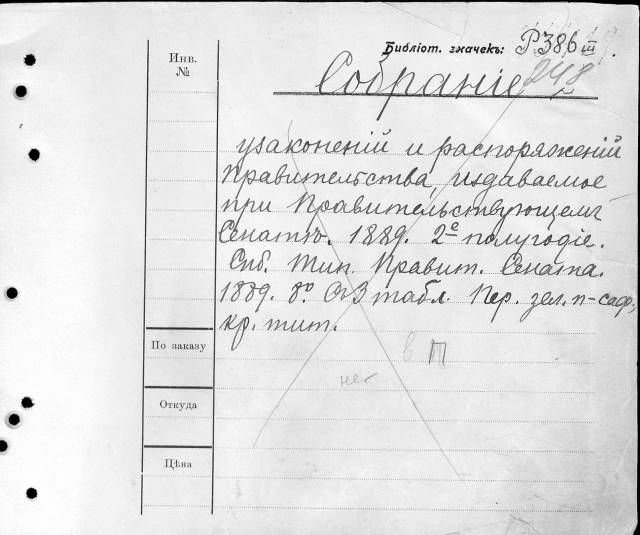 Инв.
№
Библіот. значекъ: Р386 III
248
Собраніе
узаконеній и распоряженій
Правительства, издаваемое
при Правительствующемъ
Сенатѣ. 1889. 2е полугодіе.
Спб. Тип. Правит. Сената.
1889. 8о. Съ 3 табл. Пер. зел. п-саф.,
кр. тит.
По заказу
в П
нет
Откуда
Цѣна